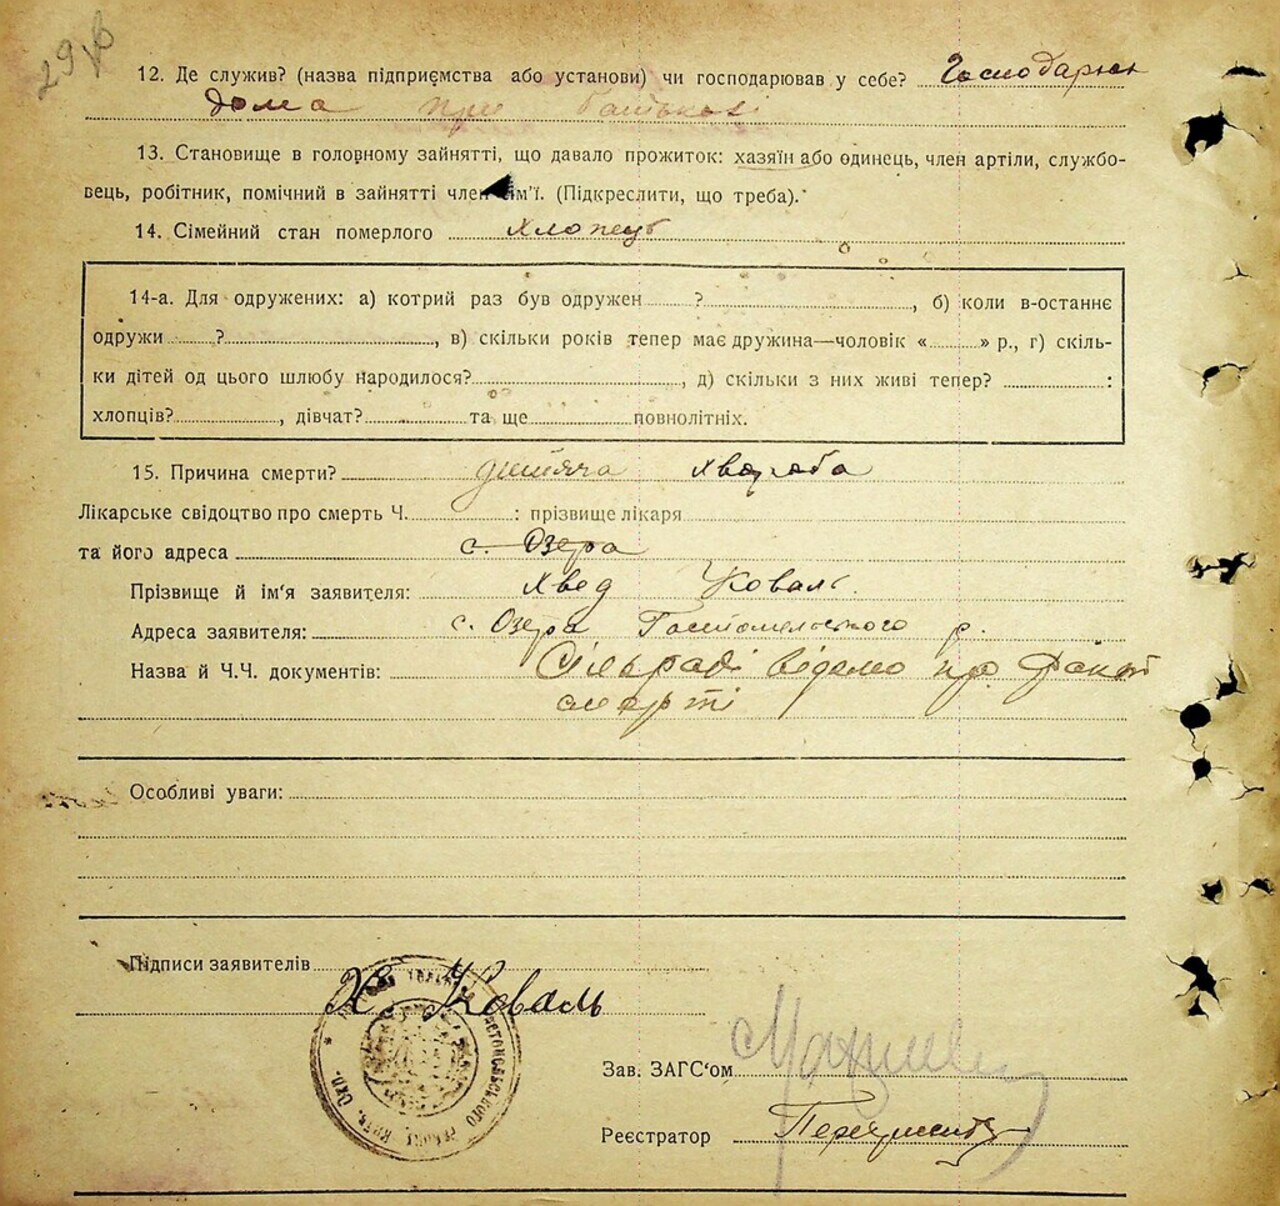 29
12. Де служив? (назва підприємства або установи) чи господарював у себе? Господарюн
дома при батькові
13. Становище в головному зайнятті, що давало прожиток: хазяїн або одинець, член артіли, службо-
вець, робітник, помічний в зайнятті член сім'ї. (Підкреслити, що треба).
14. Сімейний стан померлого хлопець
14-а. Для одружених: а) котрий раз був одружен ?, б) коли в-останнє
одружи ?, в) скільки років тепер має дружина—чоловік « » р., г) скіль-
ки дітей од цього шлюбу народилося?, д) скільки з них живі тепер? :
хлопців?, дівчат? та ще повнолітніх.
15. Причина смерти? дитяча хвороба
Лікарське свідоцтво про смерть Ч. : прізвище лікаря
та його адреса с. Озера
Прізвище й ім'я заявителя: Хвед Коваль.
Адреса заявителя: с. Озера Гостомельського р.
Назва й Ч.Ч. документів: Сільраді відомо про факт
смерті
Особливі уваги:
Підписи заявителів
Х. Коваль
Зав. ЗАГС'ом
Реєстратор